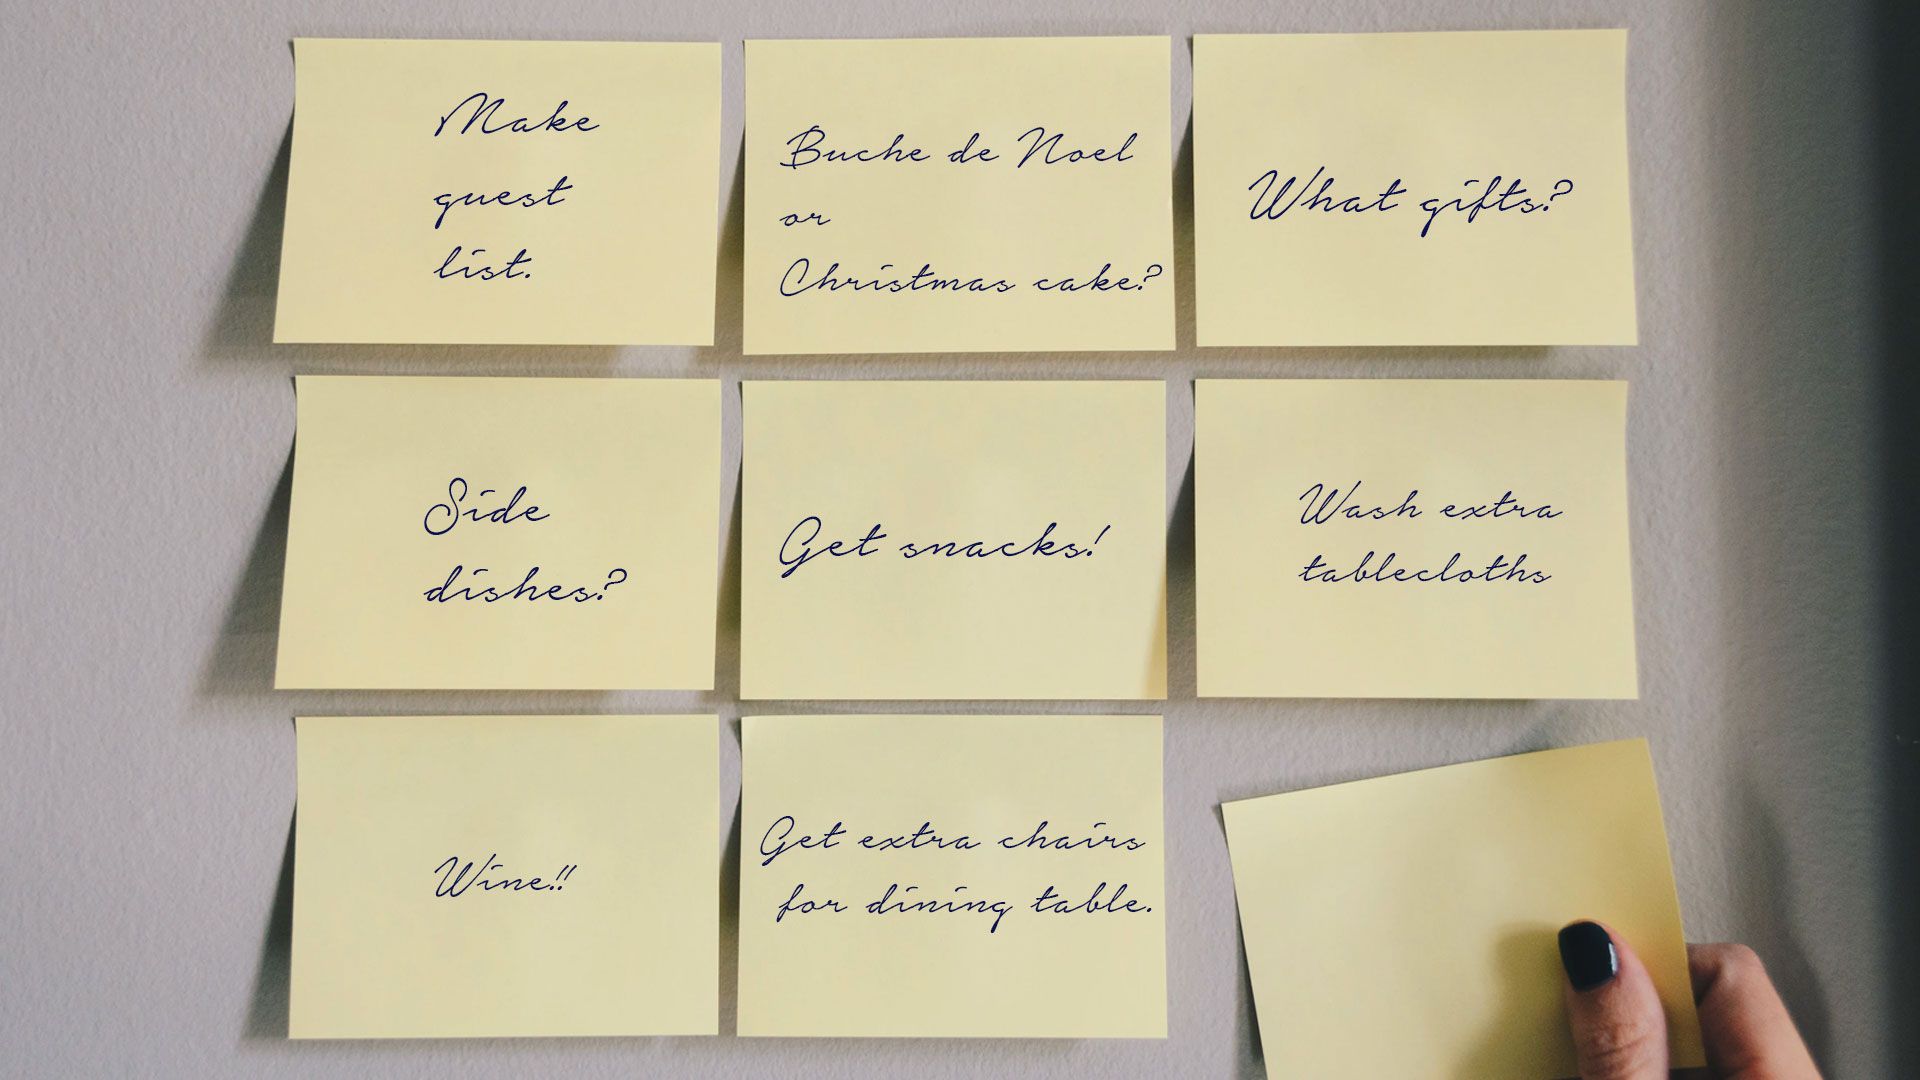 Make
guest
list.
Buche de Noel
or
Christmas cake?
What gifts?
Side
dishes?
Get snacks!
Wash extra
tablecloths
Wine!!
Get extra chairs
for dining table.